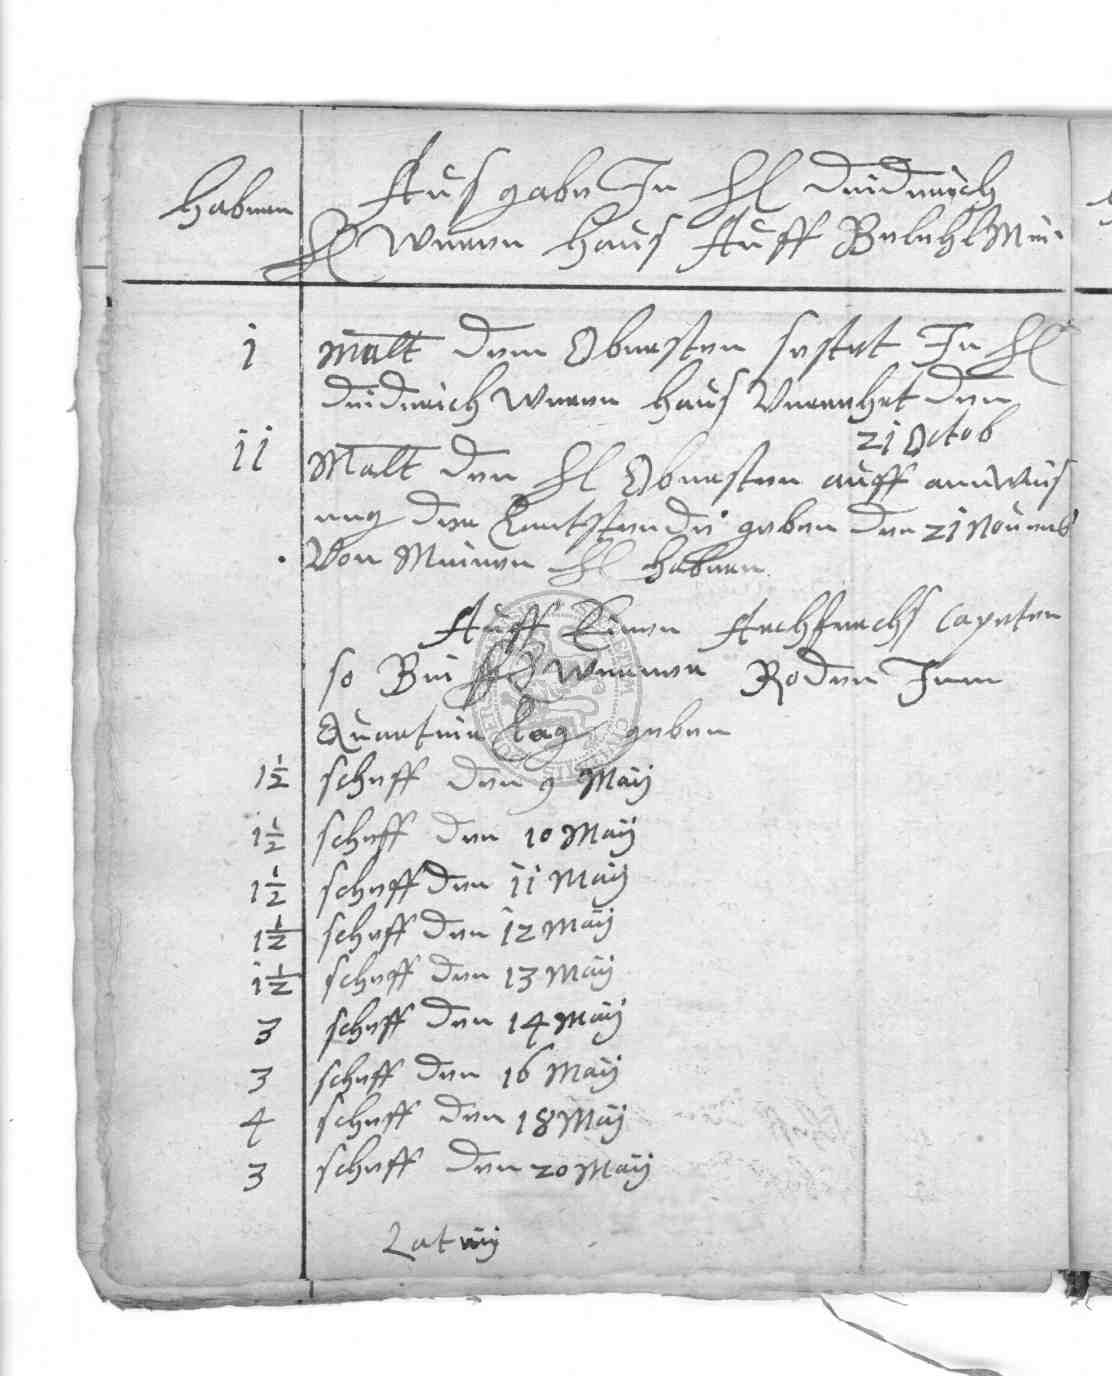 Habern Ausgabe In H Diderich
H Weren Haus Auff Belehl Mei
i Malt dem Obersten In H
Diderich Weren Haus Verehrt den
21 Octob
ii Malt den H Obersten auff anweis
ung der geben den 21 Novemb
Von Meinen H Habern
Auff Einen Capeten
so Bei H Werner Roden Inn
Quartier lag geben
1½ scheff den 9 Maij
1½ scheff den 10 Maij
1½ scheff den 11 Maij
1½ scheff den 12 Maij
1½ scheff den 13 Maij
3 scheff den 14 Maij
3 scheff den 16 Maij
4 scheff den 18 Maij
3 scheff den 20 Maij
Lat